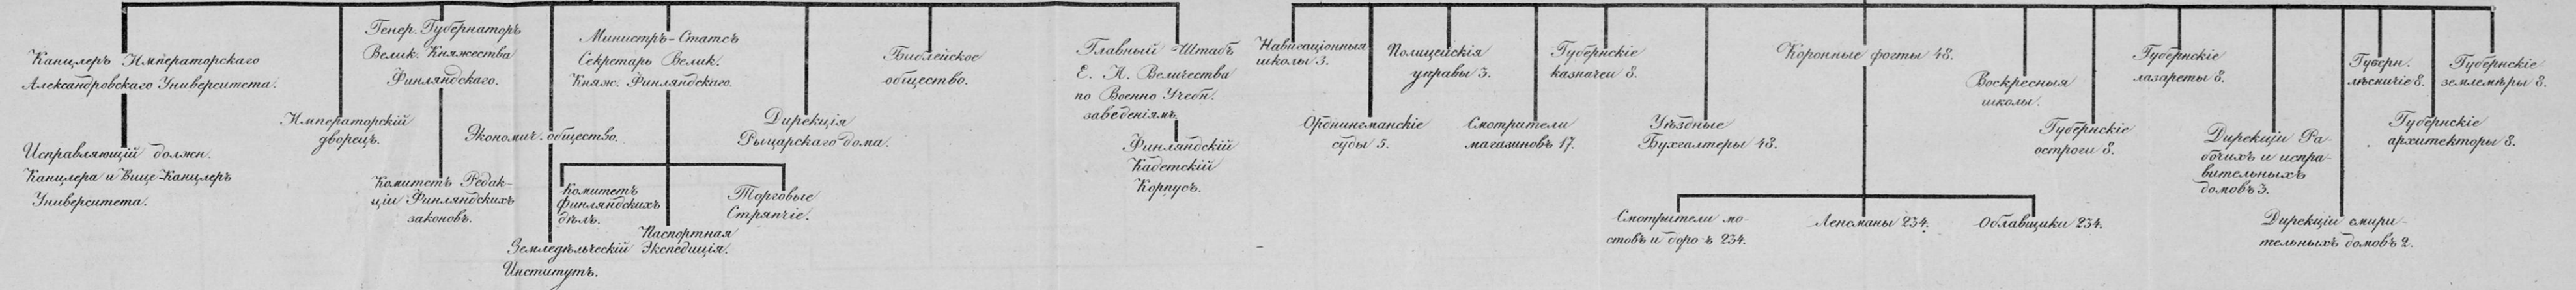 Канцлеръ Императорскаго
Александровскаго Университета.
Исправляющій должн.
Канцлера и Вице-Канцлеръ
Университета.
Императорскій
дворецъ.
Генер. Губернаторъ
Велик. Княжества
Финляндскаго.
Комитетъ Редак-
ціи Финляндскихъ
законовъ.
Экономич. общество.
Земледѣльческій
Институтъ.
Министръ-Статсъ
Секретарь Велик.
Княж. Финляндскаго.
Комитетъ
финляндскихъ
дѣлъ.
Паспортная
Экспедиція.
Торговые
Стряпчіе.
Дирекція
Рыцарскаго дома.
Библейское
общество.
Главный Штабъ
Е. И. Величества
по Военно Учебн.
заведеніямъ
Финляндскій
Кадетскій
Корпусъ.
Навигаціонныя
школы 3.
Орднингманскіе
суды 5.
Полицейскія
управы 3.
Смотрители
магазиновъ 17.
Губернскіе
казначеи 8.
Уѣздные
Бухгалтеры 48.
Коронные фогты 48.
Смотрители мо-
стовъ и доро ъ 234.
Ленсманы 234.
Облавщики 234.
Воскресныя
школы.
Губернскіе
остроги 8.
Губернскіе
лазареты 8.
Дирекціи Ра-
бочихъ и испра-
вительныхъ
домовъ 3.
Дирекціи смири-
тельныхъ домовъ 2.
Губерн.
лѣсничіе 8.
Губернскіе
архитекторы 8.
Губернскіе
землемѣры 8.